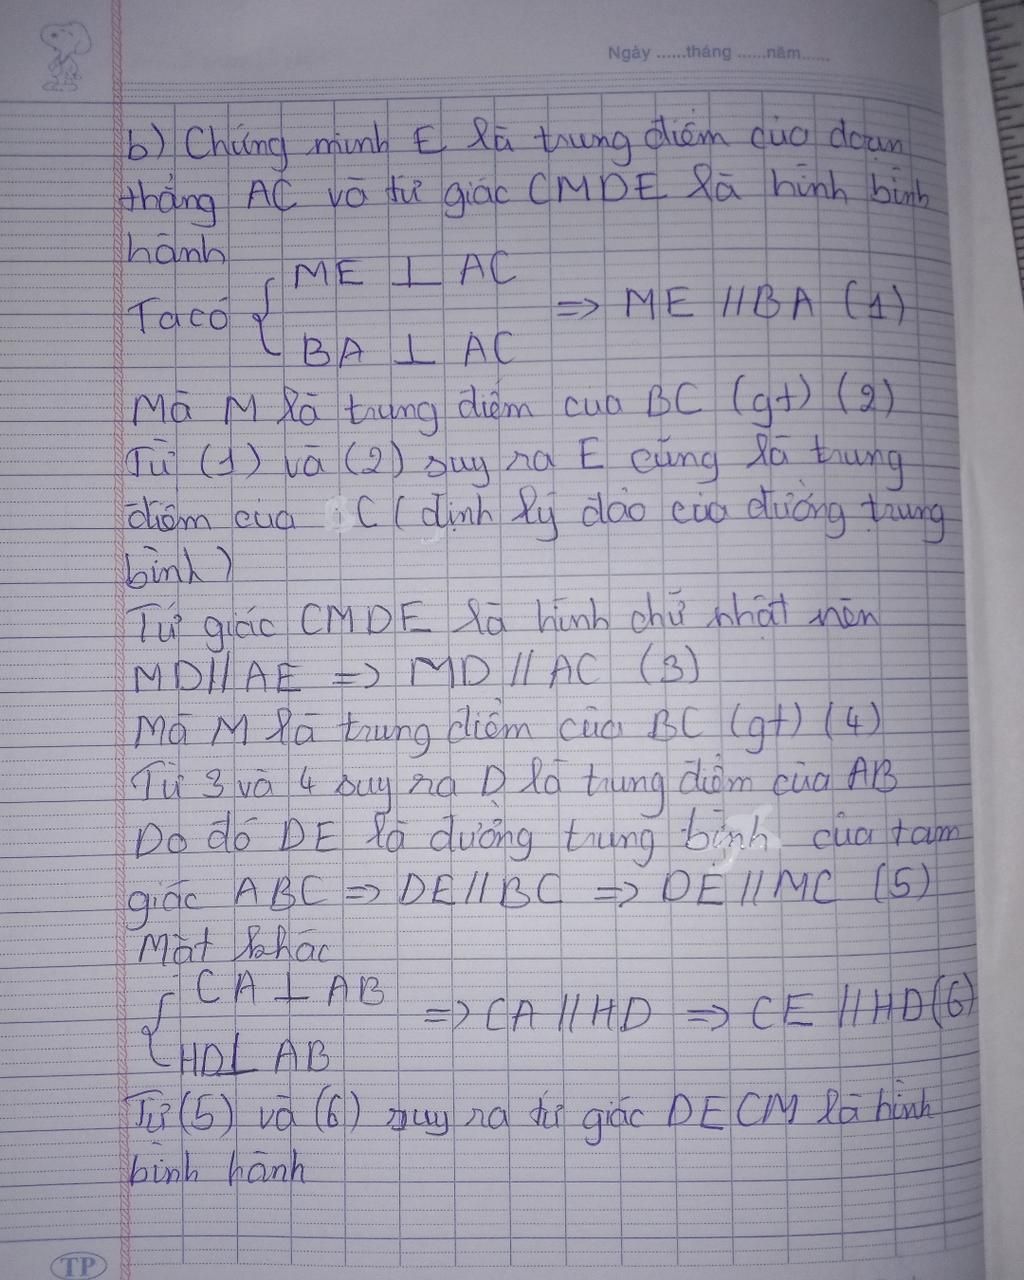 Ngày ......tháng ......năm......
b) Chứng minh E là trung điểm của đoạn
thẳng AC và tứ giác CMDE là hình bình
hành
Ta có { ME ⊥ AC
BA ⊥ AC => ME // BA (1)
Mà M là trung điểm của BC (gt) (2)
Từ (1) và (2) suy ra E cũng là trung
điểm của C (định lý đảo của đường trung
bình)
Tứ giác CMDE là hình chữ nhật nên
MD // AE => MD // AC (3)
Mà M là trung điểm của BC (gt) (4)
Từ 3 và 4 suy ra D là trung điểm của AB
Do đó DE là đường trung bình của tam
giác ABC => DE // BC => DE // MC (5)
Mặt khác
{ CA ⊥ AB
HD ⊥ AB => CA // HD => CE // HD (6)
Từ (5) và (6) suy ra tứ giác DECM là hình
bình hành
TP